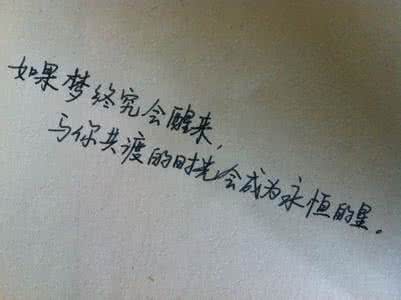 如果梦终究会醒来，
与你共渡的时光会成为永恒的星。